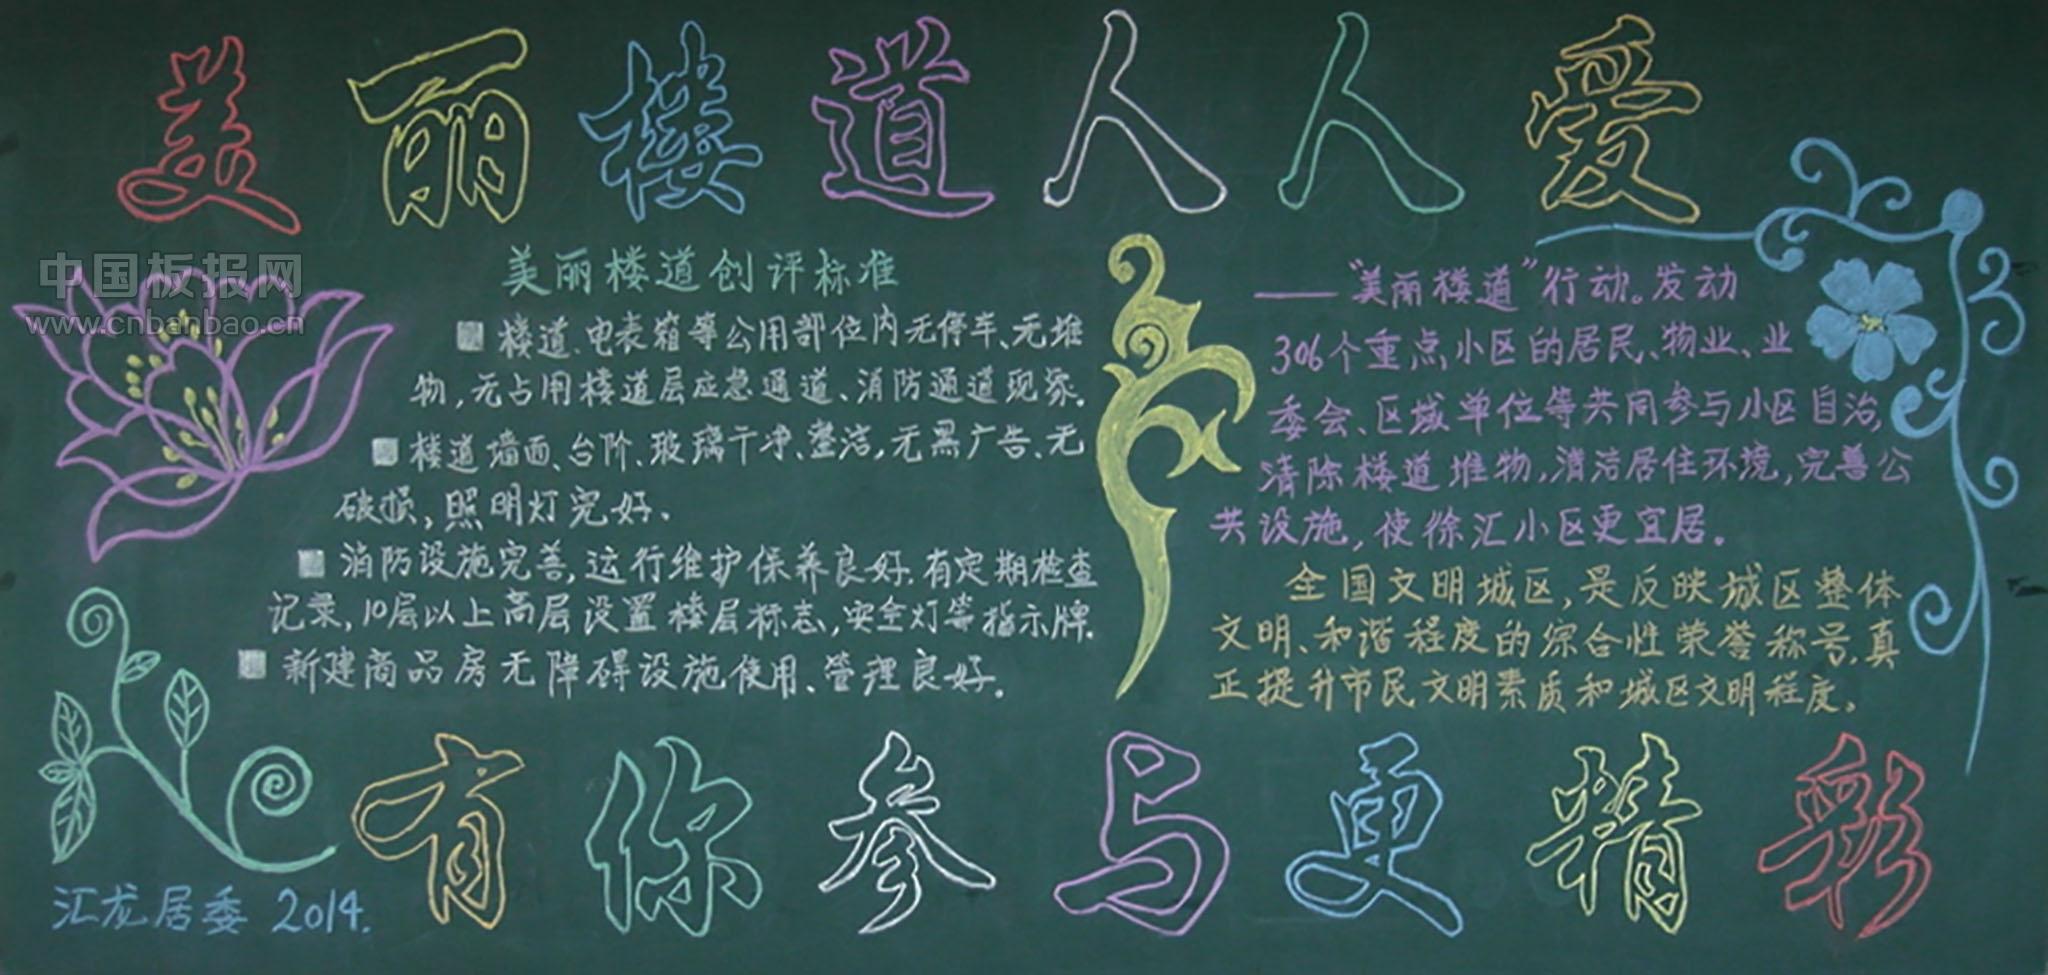 美丽楼道人人爱
中国板报网
www.cnbanbao.cn
美丽楼道创评标准
楼道、电表箱等公用部位内无停车、无堆
物,无占用楼道层应急通道、消防通道现象.
楼道墙面、台阶、玻璃干净、整洁,无黑广告、无
破损,照明灯完好.
消防设施完善,运行维护保养良好.有定期检查
记录,10层以上高层设置楼层标志,安全灯等指示牌.
新建商品房无障碍设施使用、管理良好.
——“美丽楼道”行动。发动
306个重点小区的居民、物业、业
委会、区域单位等共同参与小区自治,
清除楼道堆物,清洁居住环境,完善公
共设施,使徐汇小区更宜居.
全国文明城区,是反映城区整体
文明、和谐程度的综合性荣誉称号,真
正提升市民文明素质和城区文明程度。
有你参与更精彩
汇龙居委 2014.